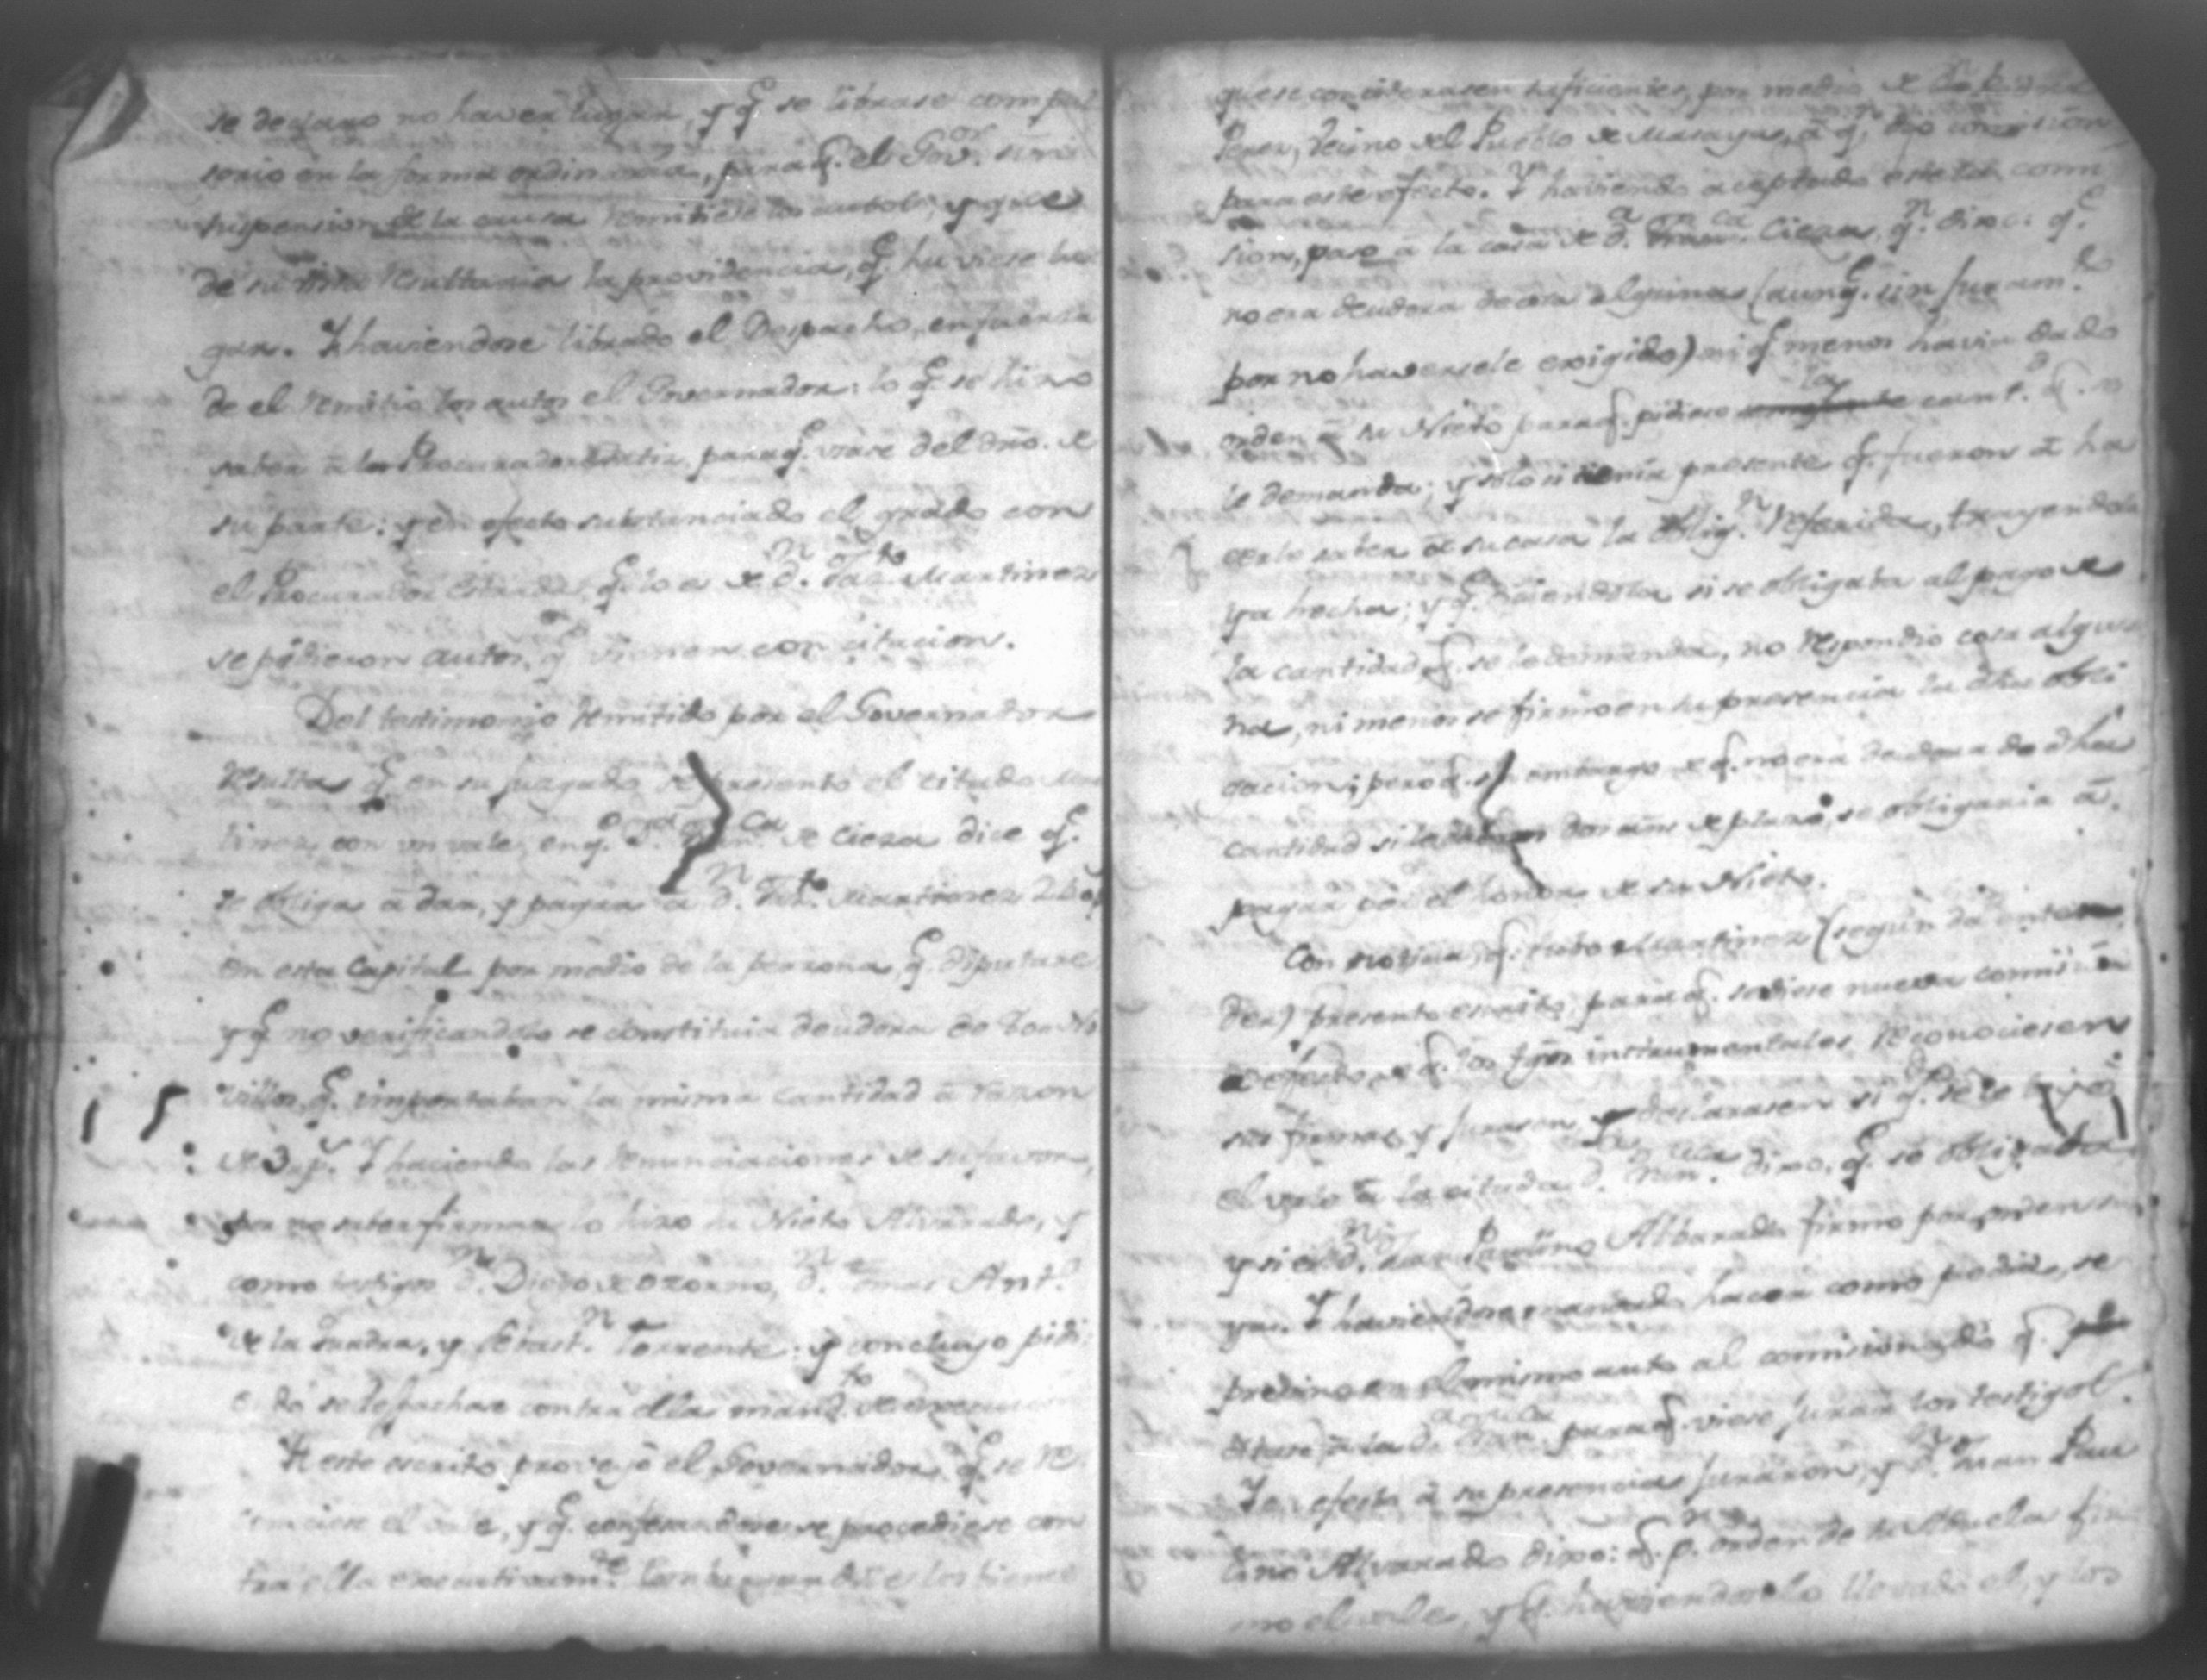 se declaro no haver lugar, y q.e se librase compul
sorio en la forma ordinaria, para q.e el Gov.or sin
suspension de la causa remitiese los autos, y que
de su vista resultaria la providencia, q.e huviese lu
gar. Y haviendose librado el Despacho, en fuerza
de el remitio los autos el Governador: lo q.e se hizo
saber à los Procuradores para q.e usase del dro. de
su parte: y en efecto substanciado el grado con
el Procurador Estrada, q.e lo es de d.n Martinez
se pidieron autos, q.e vienen con citacion.
Del testimonio remitido por el Governador
resulta q.e en su juzgado se presento el citado Mar
tinez con un vale, en q.e D.a Fran.ca de Cieza dice q.e
se obliga à dar, y pagar à d.n Martinez
en esta Capital por medio de la persona, q.e diputare
y q.e no verificandolo se constituia deudora de
q.e importaban la misma cantidad à razon
de 3 p.s Y haciendo las renunciaciones de su favor,
por no saber firmar lo hizo su Nieto Alvarado, y
como testigos d.n Diego de Ozorno, d.n Tomas Ant.o
de la y Torrente: y concluyo pidi
endo se despachase contra ella mand.to de execucion
A este escrito proveyó el Governador, q.e se re
conociese el vale, y q.e confesandose se procediese con
tra ella executivam.te los bienes
que se considerasen suficientes, por medio de
Perez, Vecino del Pueblo de Masaya, à q.n dio comision
para este efecto. Y haviendo aceptado este tal comi
sion, paso à la casa de d.a Fran.ca Cieza, q.n dixo: q.e
no era deudora de cosa alguna (aunq.e sin juram.to
por no haversele exigido) ni q.e menos havia dado
orden à su Nieto para q.e pidiese la cant.d q.e se
le demanda; y solo si tenia presente q.e fueron à ha
cerle saber à su casa la Oblig.n referida, trayendola
ya hecha; y q.e diciendola si se obligaba al pago de
la cantidad q.e se le demanda, no respondio cosa algu
na, ni menos se firmo en su presencia la dha obli
gacion; pero q.e sin embargo de q.e no era deudora de dha
cantidad si le daban dos años de plazo, se obligaria à
pagar por el honor de su Nieto.
Con noticia, q.e tubo Martinez (segun da enten
der) presento escrito, para q.e se diese nueva comision
à efecto de q.e los tgos instrumentales reconociesen
sus firmas, y jurasen y declarasen si q.do se le leyó
el vale à la citada d.a Fran.ca dixo, q.e se obligaba
y si el d.n Juan Paulino Albarado firmo por orden su
ya. Y haviendose mandado hacer como pedia, se
previno en el mismo auto al comisionado q.e
citase à la d.a Fran.ca para q.e viese jurar los testigos.
Y en efecto à su presencia juraron, y d.n Juan Pau
lino Alvarado dixo: q.e p.r orden de su Abuela fir
mo el vale, y q.e haviendoselo llevado el, y los